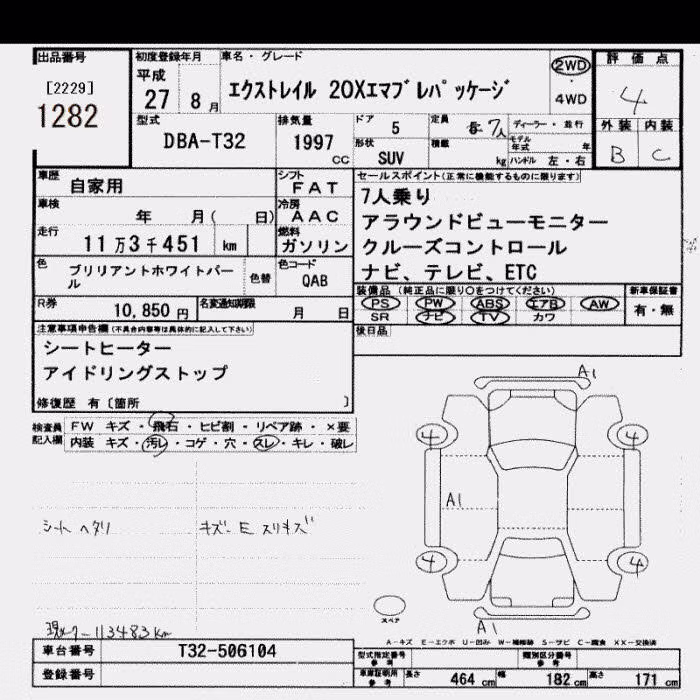 出品番号 初度登録年月 車名・グレード 評価点
[2229] 平成 エクストレイル 20Xエマブレパッケージ 2WD
1282 27 8月 ・ 4WD 4
型式 排気量 ドア 定員 ディーラー・並行 外装 内装
DBA-T32 1997 cc 5 7人 モデル年式 年 B C
形状 積載
SUV kg ハンドル 左・右
車歴 シフト セールスポイント(正常に機能するものに限ります)
自家用 FAT 7人乗り
車検 冷房 アラウンドビューモニター
年 月( 日) AAC クルーズコントロール
走行 燃料 ナビ、テレビ、ETC
11万3千451 km ガソリン
色 色替 色コード 装備品 (純正品に限り〇をつけてください) 新車保証書
ブリリアントホワイトパール QAB PS PW ABS エアB AW 有・無
SR ナビ TV カワ
R券 名変通知期限 後日品
10,850円 月 日
注意事項申告欄(不具合内容等は具体的に記入して下さい)
シートヒーター
アイドリングストップ
修復歴 有〔箇所 〕
検査員記入欄 FW キズ・飛石・ヒビ割・リペア跡・×要
内装 キズ・汚レ・コゲ・穴・スレ・キレ・破レ
A1
4 4
A1
4 4
スペア
A1
シート ヘタリ キズ- E スリキズ
113483km
A-キズ E-エクボ U-凹み W-補修跡 S-サビ C-腐食 XX-交換済
車台番号 T32-506104 型式指定番号 参考 類別区分番号 参考
登録番号 車庫証明用 参考 長さ 464 cm 幅 182 cm 高さ 171 cm